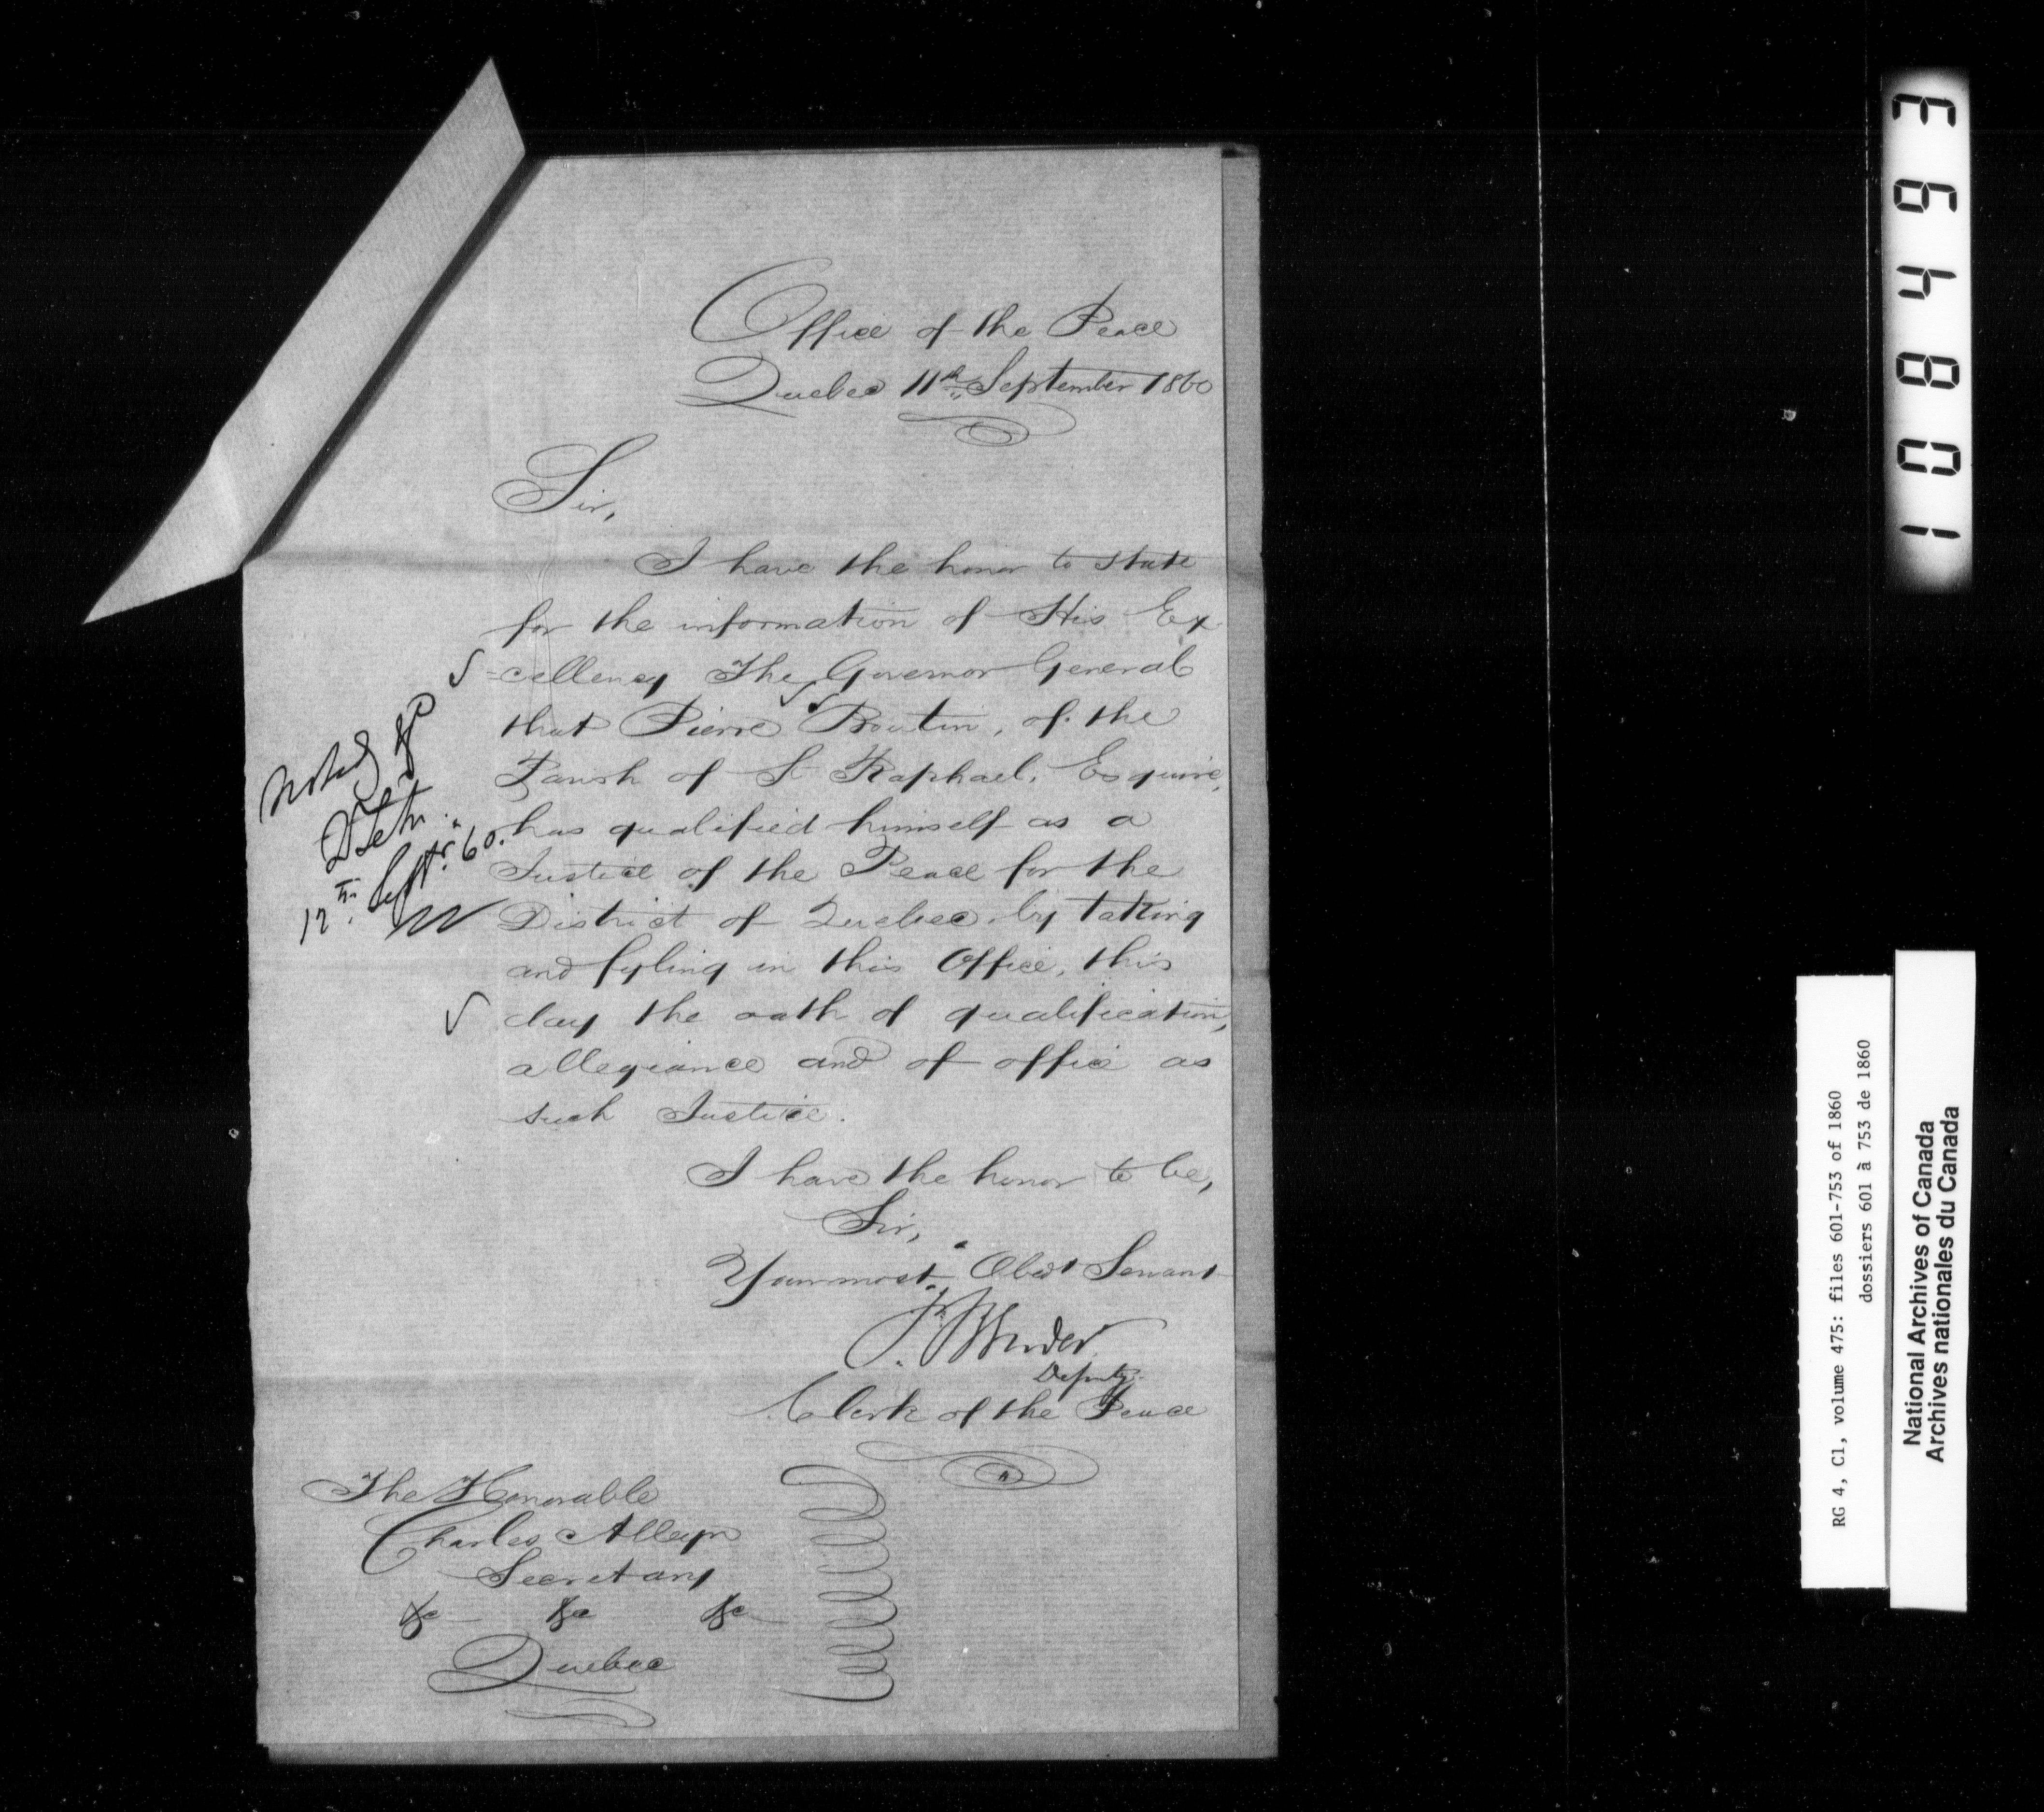 Office of the Peace
Quebec 11th September 1860
Sir,
I have the honor to state
for the information of His Ex
=cellency The Governor General
that Pierre Boutin, of the
Parish of St Raphael, Esquire,
has qualified himself as a
Justice of the Peace for the
District of Quebec, by taking
and fyling in this Office, this
day the oath of qualification,
allegiance and of office as
such Justice.
I have the honor to be,
Sir,
Your most Obedt Servant
Deputy
Clerk of the Peace
The Honorable
Charles Alleyn
Secretary
&c &c &c
Quebec
Noted JP
12th Septr. 60.
108493
RG 4, C1, volume 475: files 601-753 of 1860
dossiers 601 à 753 de 1860
National Archives of Canada
Archives nationales du Canada